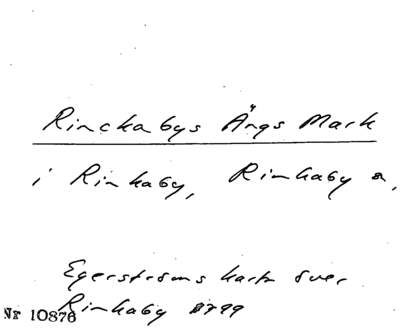 Rinckabys Ängs Mark
i Rinkaby, Rinkaby s,
Egerströms karta över
Rinkaby 1799
Nr 10876